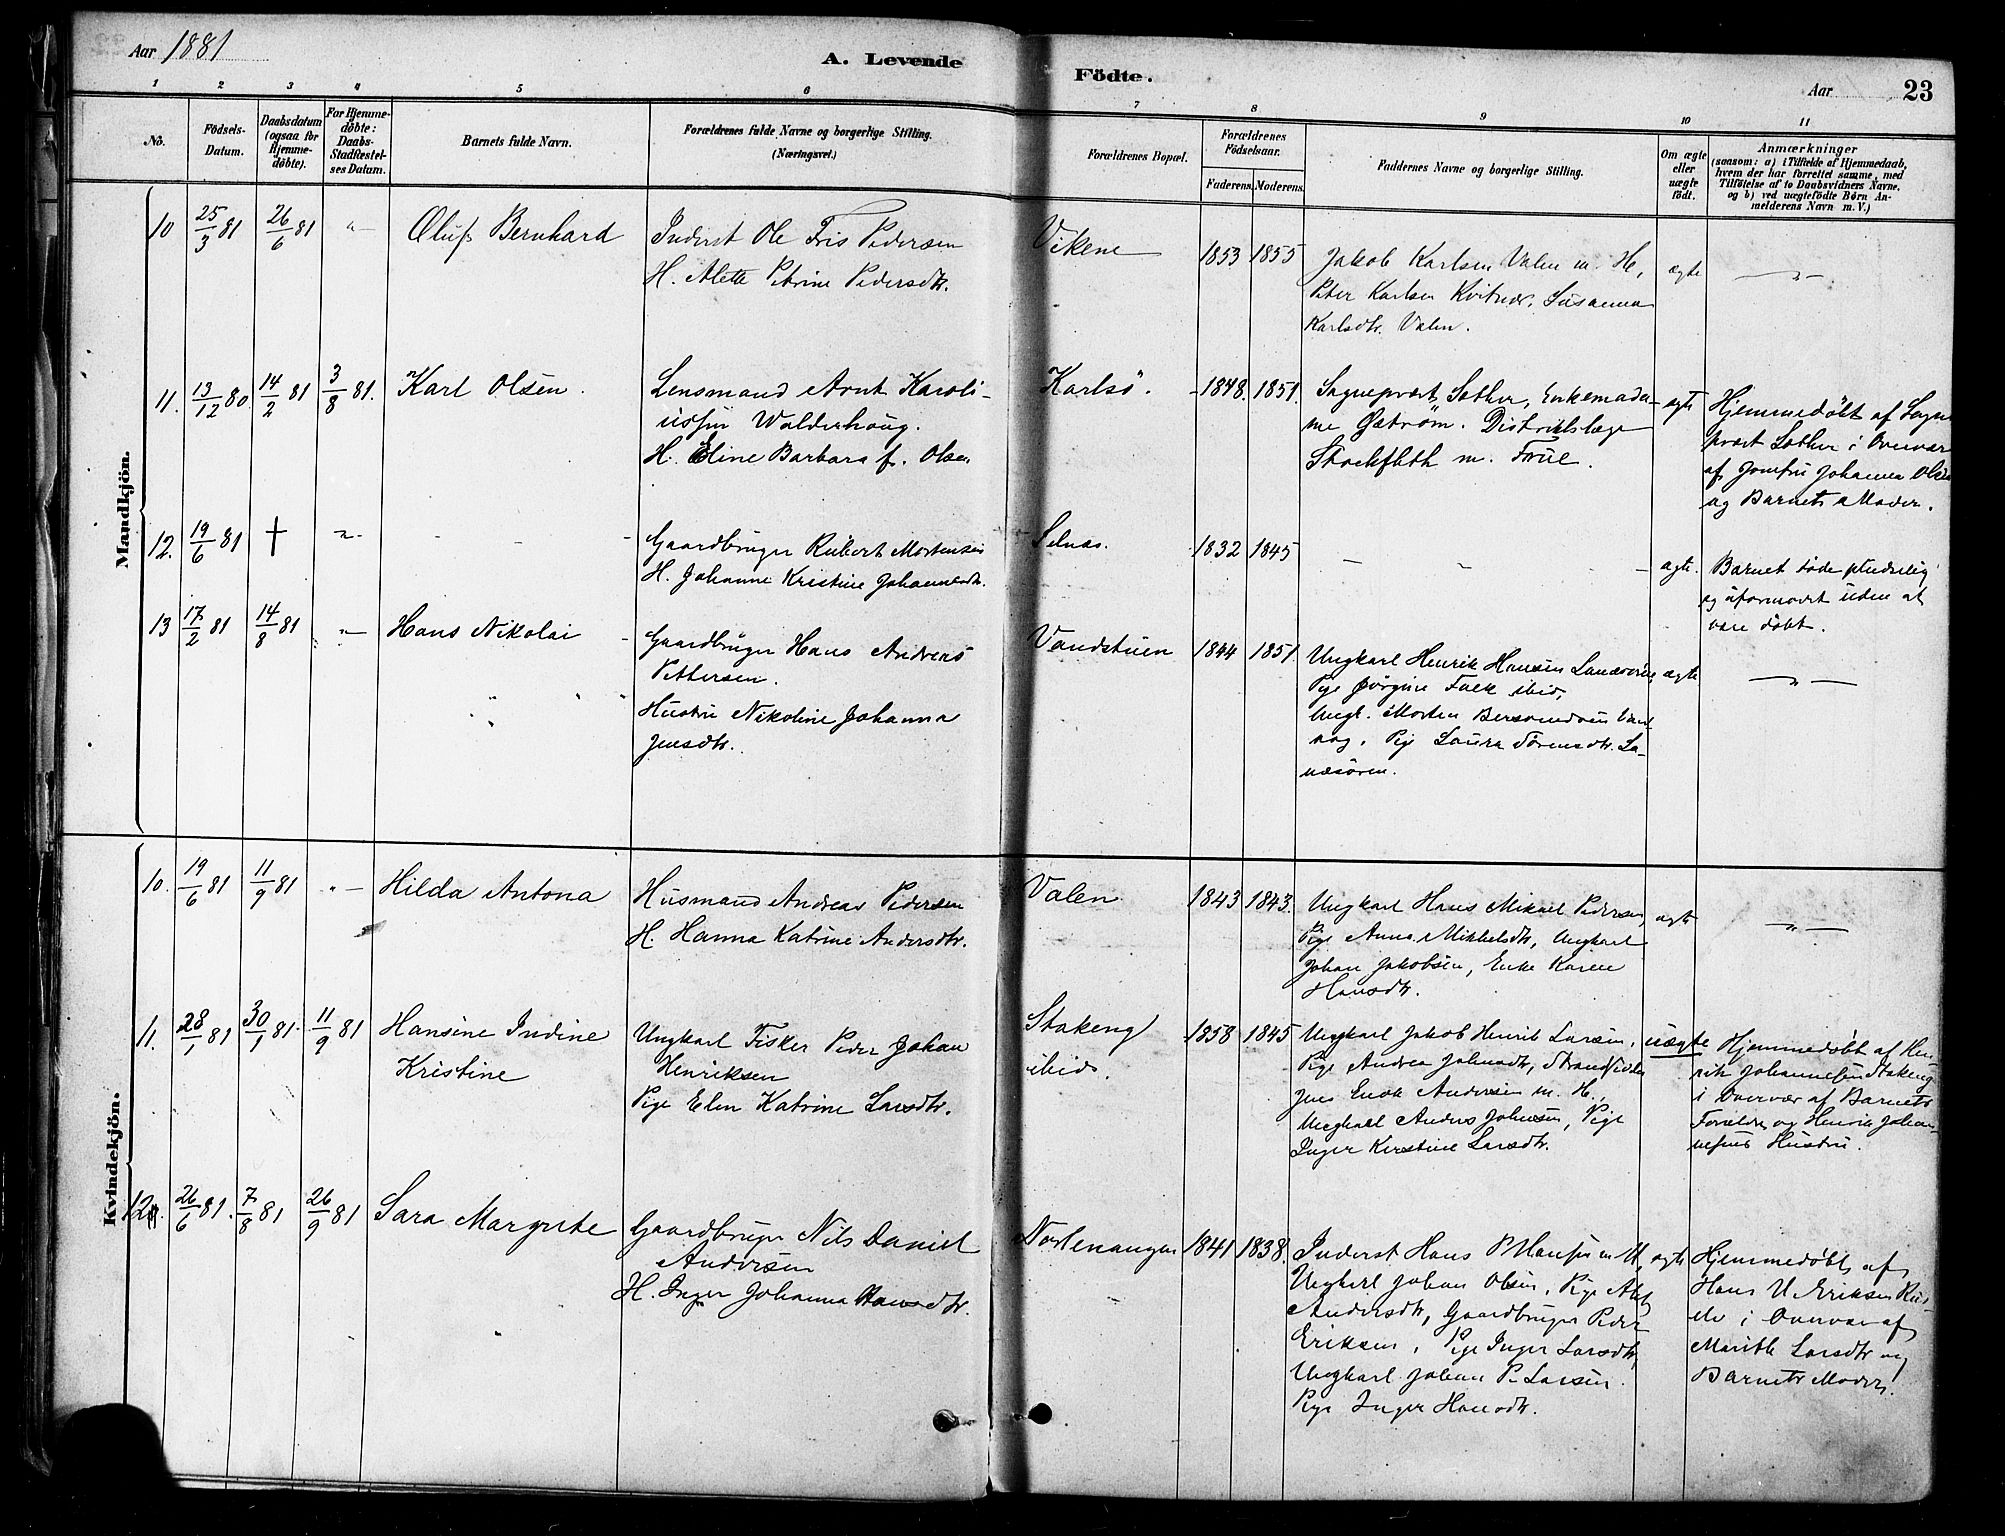 Aar 1881
A. Levende
Födte.
Aar
23
1 2 3 4 5 6 7 8 9 10 11
No.
Födsels-Datum.
Daabsdatum (ogsaa for Hjemme-döbte).
For Hjemme-döbte: Daabs-Stadfæstel-ses Datum.
Barnets fulde Navn.
Forældrenes fulde Navne og borgerlige Stilling.
(Næringsvei.)
Forældrenes Bopæl.
Forældrenes Födselsaar.
Faderens. Moderens.
Faddernes Navne og borgerlige Stilling.
Om ægte eller uægte födt.
Anmærkninger
(saasom: a) i Tilfælde af Hjemmedaab,
hvem der har forrettet samme, med
Tilföielse af to Daabsvidners Navne,
og b) ved uægtefödte Börn An-
melderens Navn m. V.)
Mandkjön.
10 25/3 81 26/6 81 "— Oluf Bernhard
Inderst Ole Fris Pedersen
H. Alette Petrine Pedersdtr.
Vikene 1853 1855
Jakob Karlsen Valen m. H.,
Peter Karlsen Kvitnes, Susanna
Karlsdtr. Valen.
ægte —"—
11. 13/12 80 14/2 81 3/8 81. Karl Olsen.
Lensmand Arnt Karoli-
ussen Walderhaug.
H. Eline Barbara f. Olsen
Karlsö. 1848. 1851.
Sognepræst Sæther, Enkemada-
me Gæström. Distriktslæge
Stockfleth m. Frue.
ægte
Hjemmedöbt af Sogne
præst Sæther i Overvær
af Jomfru Johanna Olsen
og Barnets Moder.
12. 19/6 81 † "-
Gaardbruger Rubert Mortensen
H. Johanne Kristine Johannesdtr.
Selnæs. 1832 1845
ægte.
Barnet döde pludselig
og uformodet uden at
være döbt.
13 17/2 81 14/8 81 "— Hans Nikolai
Gaardbruger Hans Andreas
Pettersen.
Hustru Nikoline Johanna
Jensdtr.
Vandstuen 1844 1851.
Ungkarl Henrik Hansen
Pige Jörgine Falk ibid,
Ungk. Morten
Pige Laura Sörensdtr. La-
næsören.
ægte —"—
Kvindekjön.
10. 19/6 81 11/9 81 "— Hilda Antona
Husmand Andreas Pedersen
H. Hanna Katrine Andersdtr.
Valen 1843 1843.
Ungkarl Hans Mikael Pedersen,
Pige Anna Mikkelsdtr, Ungkarl
Johan Jakobsen, Enke Karen
Hansdtr.
ægte —"—
11. 28/1 81 30/1 81. 11/9 81 Hansine Indine
Kristine
Ungkarl Fisker Peder Johan
Henriksen
Pige Elen Katrine Larsdtr.
Stakeng
ibid. 1858 1845
Ungkarl Jakob Henrik Larsen,
Pige Andrea Johnsdtr, Strandsidder
Jens Enok Andersen m. H.,
Ungkarl Anders Johnsen, Pige
Inger Kerstine Larsdtr.
uægte
Hjemmedöbt af Hen
rik Johannesen Stakeng
i Overvær af Barnets
Forældre og Henrik Johan-
nesens Hustru.
12. 26/6 81. 7/8 81 26/9 81 Sara Margrete
Gaardbruger Nils Daniel
Andersen
H. Inger Johanna Hansdtr.
Nordlenangen 1841 1838.
Inderst Hans P. Hansen m H,
Ungkarl Johan Olsen, Pige
Andersdtr, Gaardbruger Peder
Eriksen, Pige Inger Larsdtr,
Ungkarl Johan P. Larsen.
Pige Inger Hansdtr.
ægte
Hjemmedöbt af
Hans U. Eriksen
i Overvær af
Marith Larsdtr og
Barnets Moder.